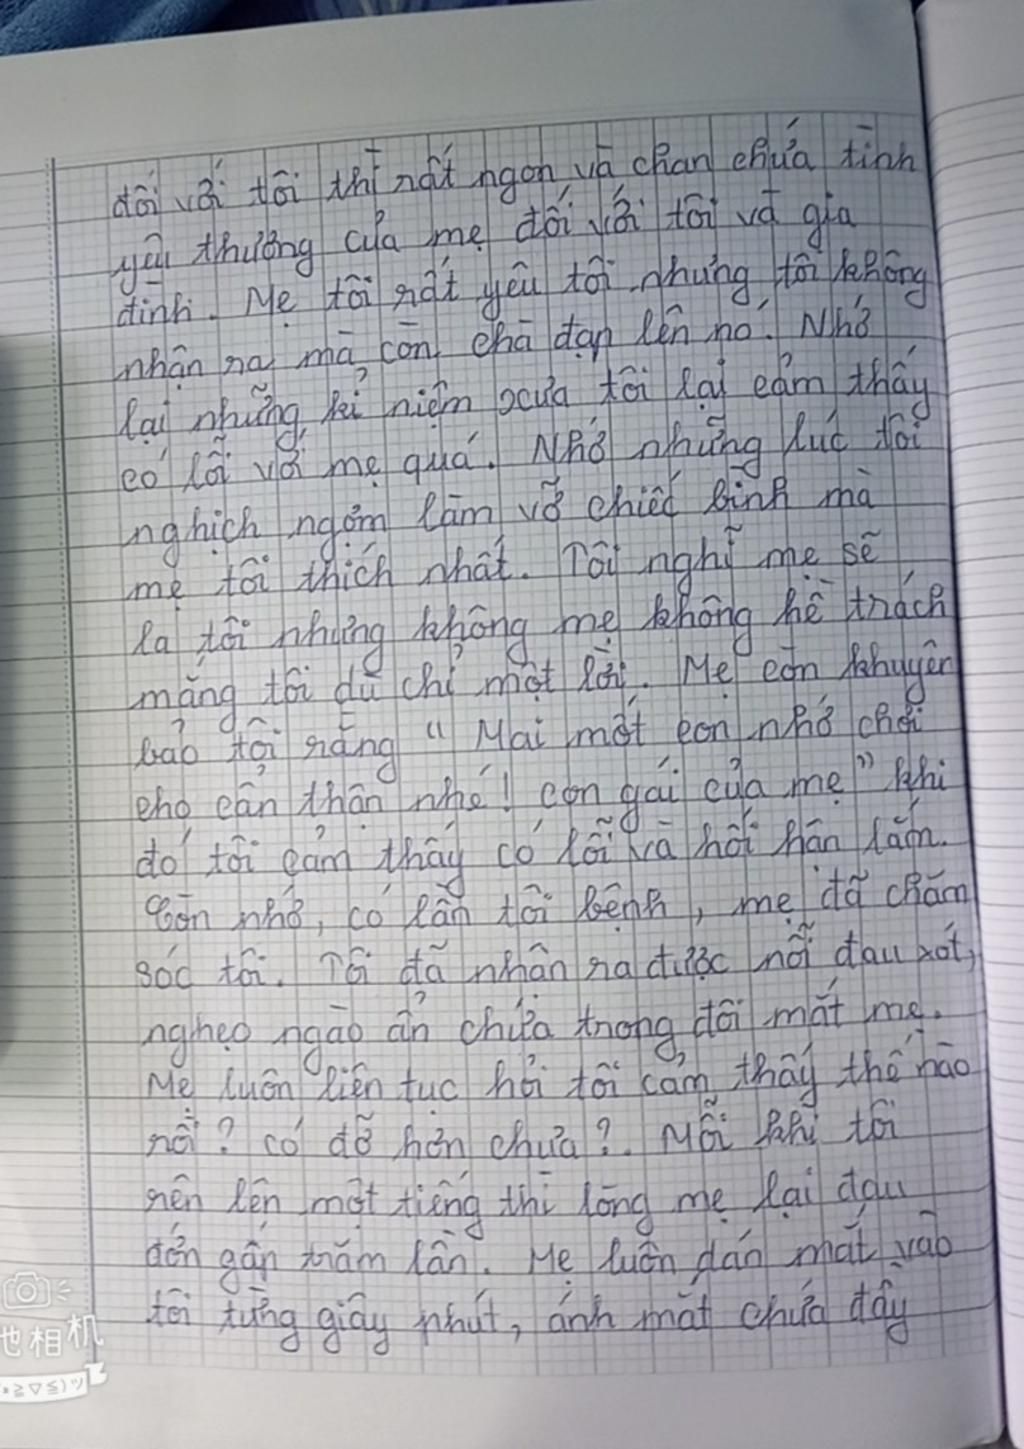 đối với tôi thì rất ngon và chan chứa tình
yêu thương của mẹ đối với tôi và gia
đình. Mẹ tôi rất yêu tôi nhưng tôi không
nhận ra mà còn chà đạp lên nó. Nhớ
lại những kỉ niệm xưa tôi lại cảm thấy
có lỗi với mẹ quá. Nhớ những lúc tôi
nghịch ngợm làm vỡ chiếc bình mà
mẹ tôi thích nhất. Tôi nghĩ mẹ sẽ
la tôi nhưng không mẹ không hề trách
mắng tôi dù chỉ một lời. Mẹ còn khuyên
bảo tôi rằng " Mai mốt con nhớ chơi
cho cẩn thận nhé! con gái của mẹ" khi
đó tôi cảm thấy có lỗi và hối hận lắm.
Còn nhớ, có lần tôi bệnh, mẹ đã chăm
sóc tôi. Tôi đã nhận ra được nỗi đau xót,
nghẹo ngào ẩn chứa trong đôi mắt mẹ.
Mẹ luôn liên tục hỏi tôi cảm thấy thế nào
rồi? có đỡ hơn chưa?. Mỗi khi tôi
rên lên một tiếng thì lòng mẹ lại đau
đớn gấn trăm lần. Mẹ luôn dán mắt vào
tôi từng giây phút, ánh mắt chứa đầy
相机